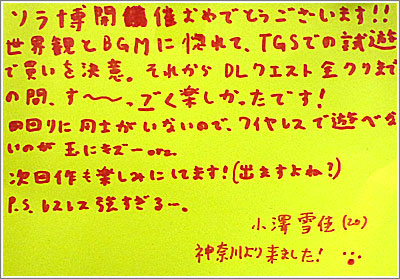 ソラ博開催おめでとうございます!!
世界観とBGMに惚れて、TGSでの試遊
で買いを決意。それからDLクエスト全クリまで
の間、す〜〜っごく楽しかったです!
の回りに同士がいないので、ワイヤレスで遊べな
いのが玉にキズーorz
次回作も楽しみにしてます!(出ますよね?)
P.S. レスレス強すぎるー。
小澤 雪佳(20)
神奈川より来ました!